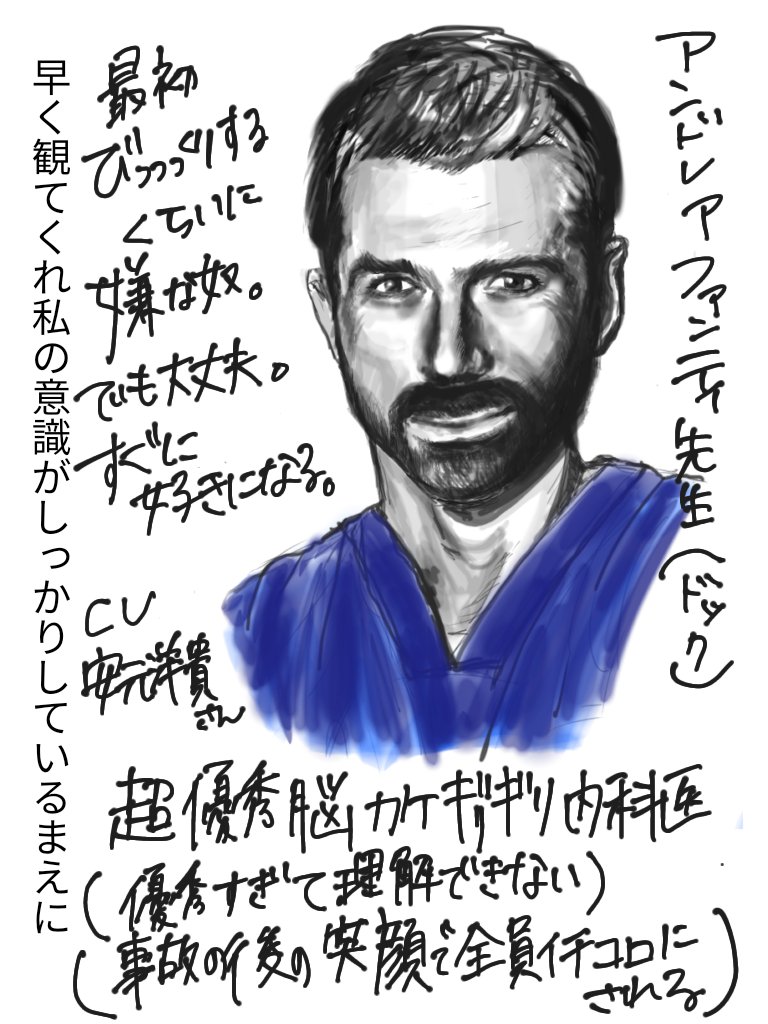 アンドレアファンティ先生(ドック)
最初
びっっっくりする
くらいに
嫌な奴。
でも大丈夫。
すぐに
好きになる。
早く観てくれ私の意識がしっかりしているまえに
CV
安元洋貴
さん
超優秀脳カケギリギリ内科医
(優秀すぎて理解できない)
(事故の後の笑顔で全員イチコロに
される)